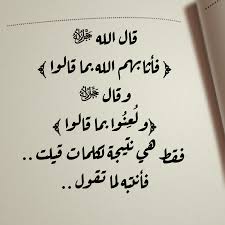 قال الله ﷻ
﴿ فأثابهم الله بما قالوا ﴾
و قال ﷻ
﴿ ولُعِنُوا بما قالوا ﴾
فقط هي نتيجة لكلمات قيلت ..
فأنتبِه لما تقول ..